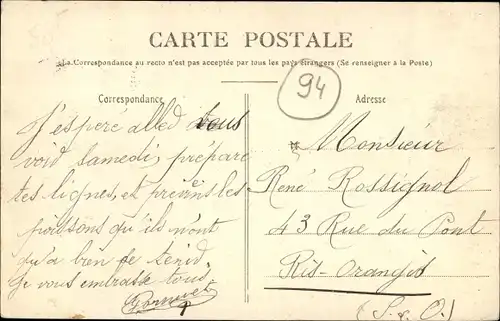 CARTE POSTALE
La Correspondance au recto n'est pas acceptée par tous les pays étrangers (Se renseigner à la Poste)
94
Correspondance
J'espère alled vous
void samedi, prépare
tes lignes, et préviens les
poissons qu'ils n'ont
qu'a bien se tenid,
je vous embrasse tous,
Adresse
Monsieur
René Rossignol
43 Rue du Pont
Ris-Orangis
(S. & O.)